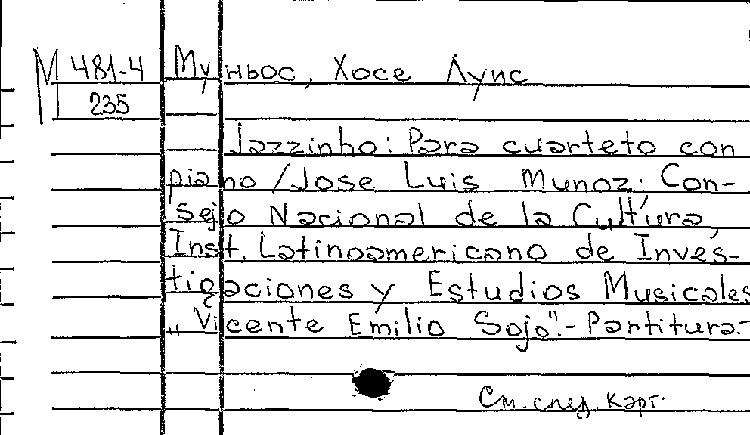 М 481-4 Муньос, Хосе Луис
235
Jazzinho: Para cuarteto con
piano / Jose Luis Munoz; Con-
sejo Nacional de la Cultura,
Inst. Latinoamericano de Inves-
tigaciones y Estudios Musicales
„Vicente Emilio Sojo".- Partitura.-
См. след. карт.